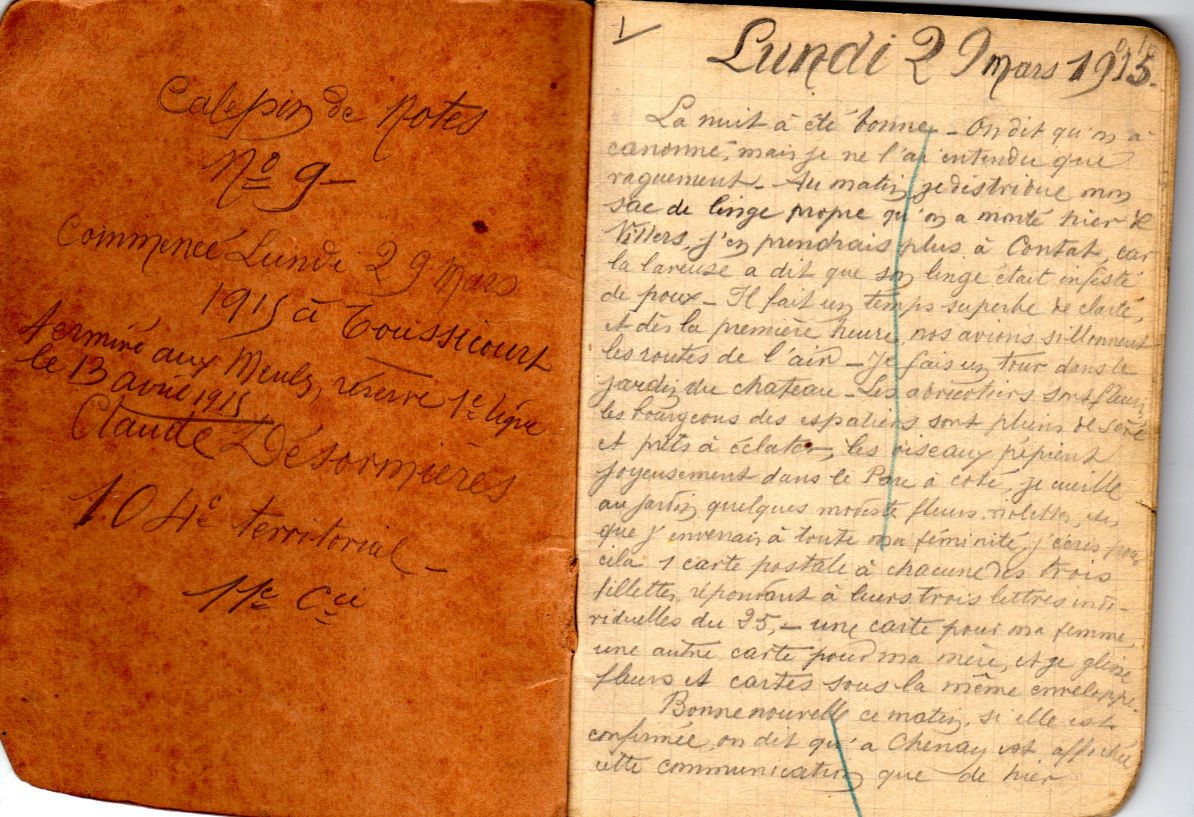 Calepin de Notes
N° 9 -
Commencé Lundi 29 Mars
1915 à Toussicourt
terminé aux Meules, réserve 1e ligne
le 13 avril 1915
Claude Désormières
104e territorial -
11e Cie
1
Lundi 29 mars 1915.
La nuit à été bonne - On dit qu'on a
canonné, mais je ne l'ai entendu que
vaguement - Au matin je distribue mon
sac de linge propre qu'on a monté hier de
Villers, j'en prendrais plus à Contat, car
la laveuse a dit que son linge était infesté
de poux - Il fait un temps superbe de clarté,
et dès la première heure, nos avions sillonnent
les routes de l'air - Je fais un tour dans le
jardin du chateau - Les abricotiers sont fleuris
les bourgeons des espaliers sont pleins de sève
et prêts à éclater, les oiseaux pépient
joyeusement dans le Parc à coté, je cueille
au jardin quelques modeste fleurs, violettes, etc,
que j'envenais à toute ma féminité, j'écris pour
cela 1 carte postale à chacune des trois
fillettes, répondant à leurs trois lettres indi-
viduelles du 25, - une carte pour ma femme,
une autre carte pour ma mère, et je glisse
fleurs et cartes sous la même enveloppe.
Bonne nouvelle ce matin, si elle est
confirmée, on dit qu'a Chenay est affichée
cette communication que de hier